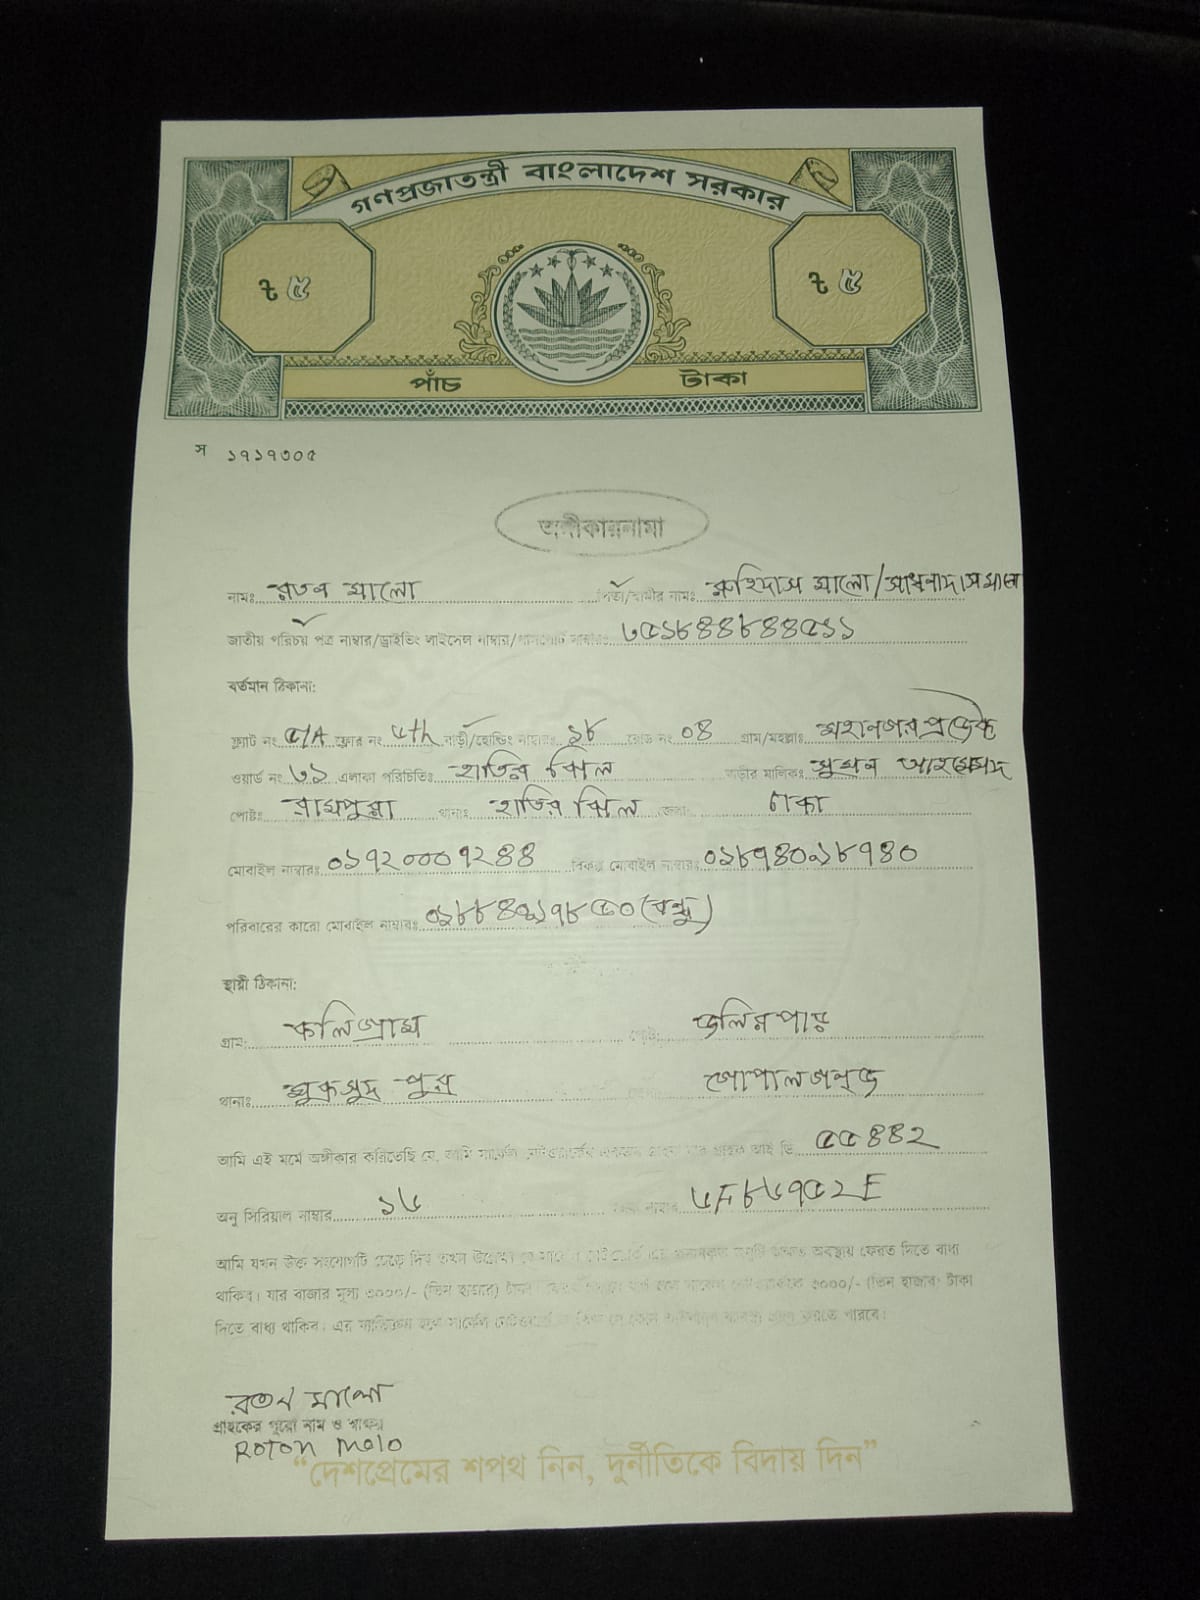 গণপ্রজাতন্ত্রী বাংলাদেশ সরকার
৳ ৫ ৳ ৫
পাঁচ টাকা
স ১৭১৭৩০৫
অঙ্গীকারনামা
নামঃ রতন মালো পিতা/স্বামীর নামঃ রুহিদাস মালো/
জাতীয় পরিচয় পত্র নাম্বার/ড্রাইভিং লাইসেন্স নাম্বার/পাসপোর্ট নাম্বারঃ ৩৫১৮৪৪৮৪৪৫১১
বর্তমান ঠিকানা:
ফ্ল্যাট নং ৫/A ফ্লোর নং ৬th বাড়ী/হোল্ডিং নাম্বারঃ ১৮ রোড নং ০৪ গ্রাম/মহল্লাঃ মহানগর প্রজেক্ট
ওয়ার্ড নং এলাকা পরিচিতিঃ হাতির ঝিল বাড়ীর মালিকঃ সুমন আহমেদ
পোষ্টঃ রামপুরা থানাঃ হাতির ঝিল জেলা ঢাকা
মোবাইল নাম্বারঃ ০১৭২০০০৭২৪৪ বিকল্প মোবাইল নাম্বারঃ ০১৮৭৪০১৮৭৪০
পরিবারের কারো মোবাইল নাম্বারঃ (বন্ধু)
স্থায়ী ঠিকানা:
গ্রাম: কলিগ্রাম পোষ্ট: জলিরপাড়
থানাঃ মুকসুদ পুর গোপালগঞ্জ
আমি এই মর্মে অঙ্গীকার করিতেছি যে, আমি আই ডি ৫৫৪৪২
অনু সিরিয়াল নাম্বার ১৬ ৬F৮৬৭৫২E
আমি যখন উক্ত সংযোগটি ছেড়ে দিব তখন অবস্থায় ফেরত দিতে বাধ্য
থাকিব। যার বাজার মূল্য ৩০০০/- (তিন হাজার) ৩০০০/- (তিন হাজার) টাকা
দিতে বাধ্য থাকিব। এর ব্যতিক্রম হলে করতে পারবে।
রতন মালো
গ্রাহকের পুরো নাম ও স্বাক্ষর
ROTON Malo
“দেশপ্রেমের শপথ নিন, দুর্নীতিকে বিদায় দিন”